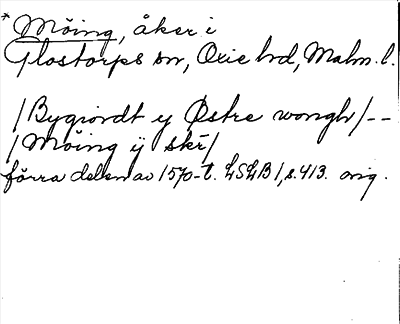 *Möing, åker i
Glostorps sn, Oxie hd, Malm. l.
/Bygiordt y Østre wongh/--
/Möing ÿ skr̄/
förra delen av 1570-t. LSLB I, s. 413. orig.